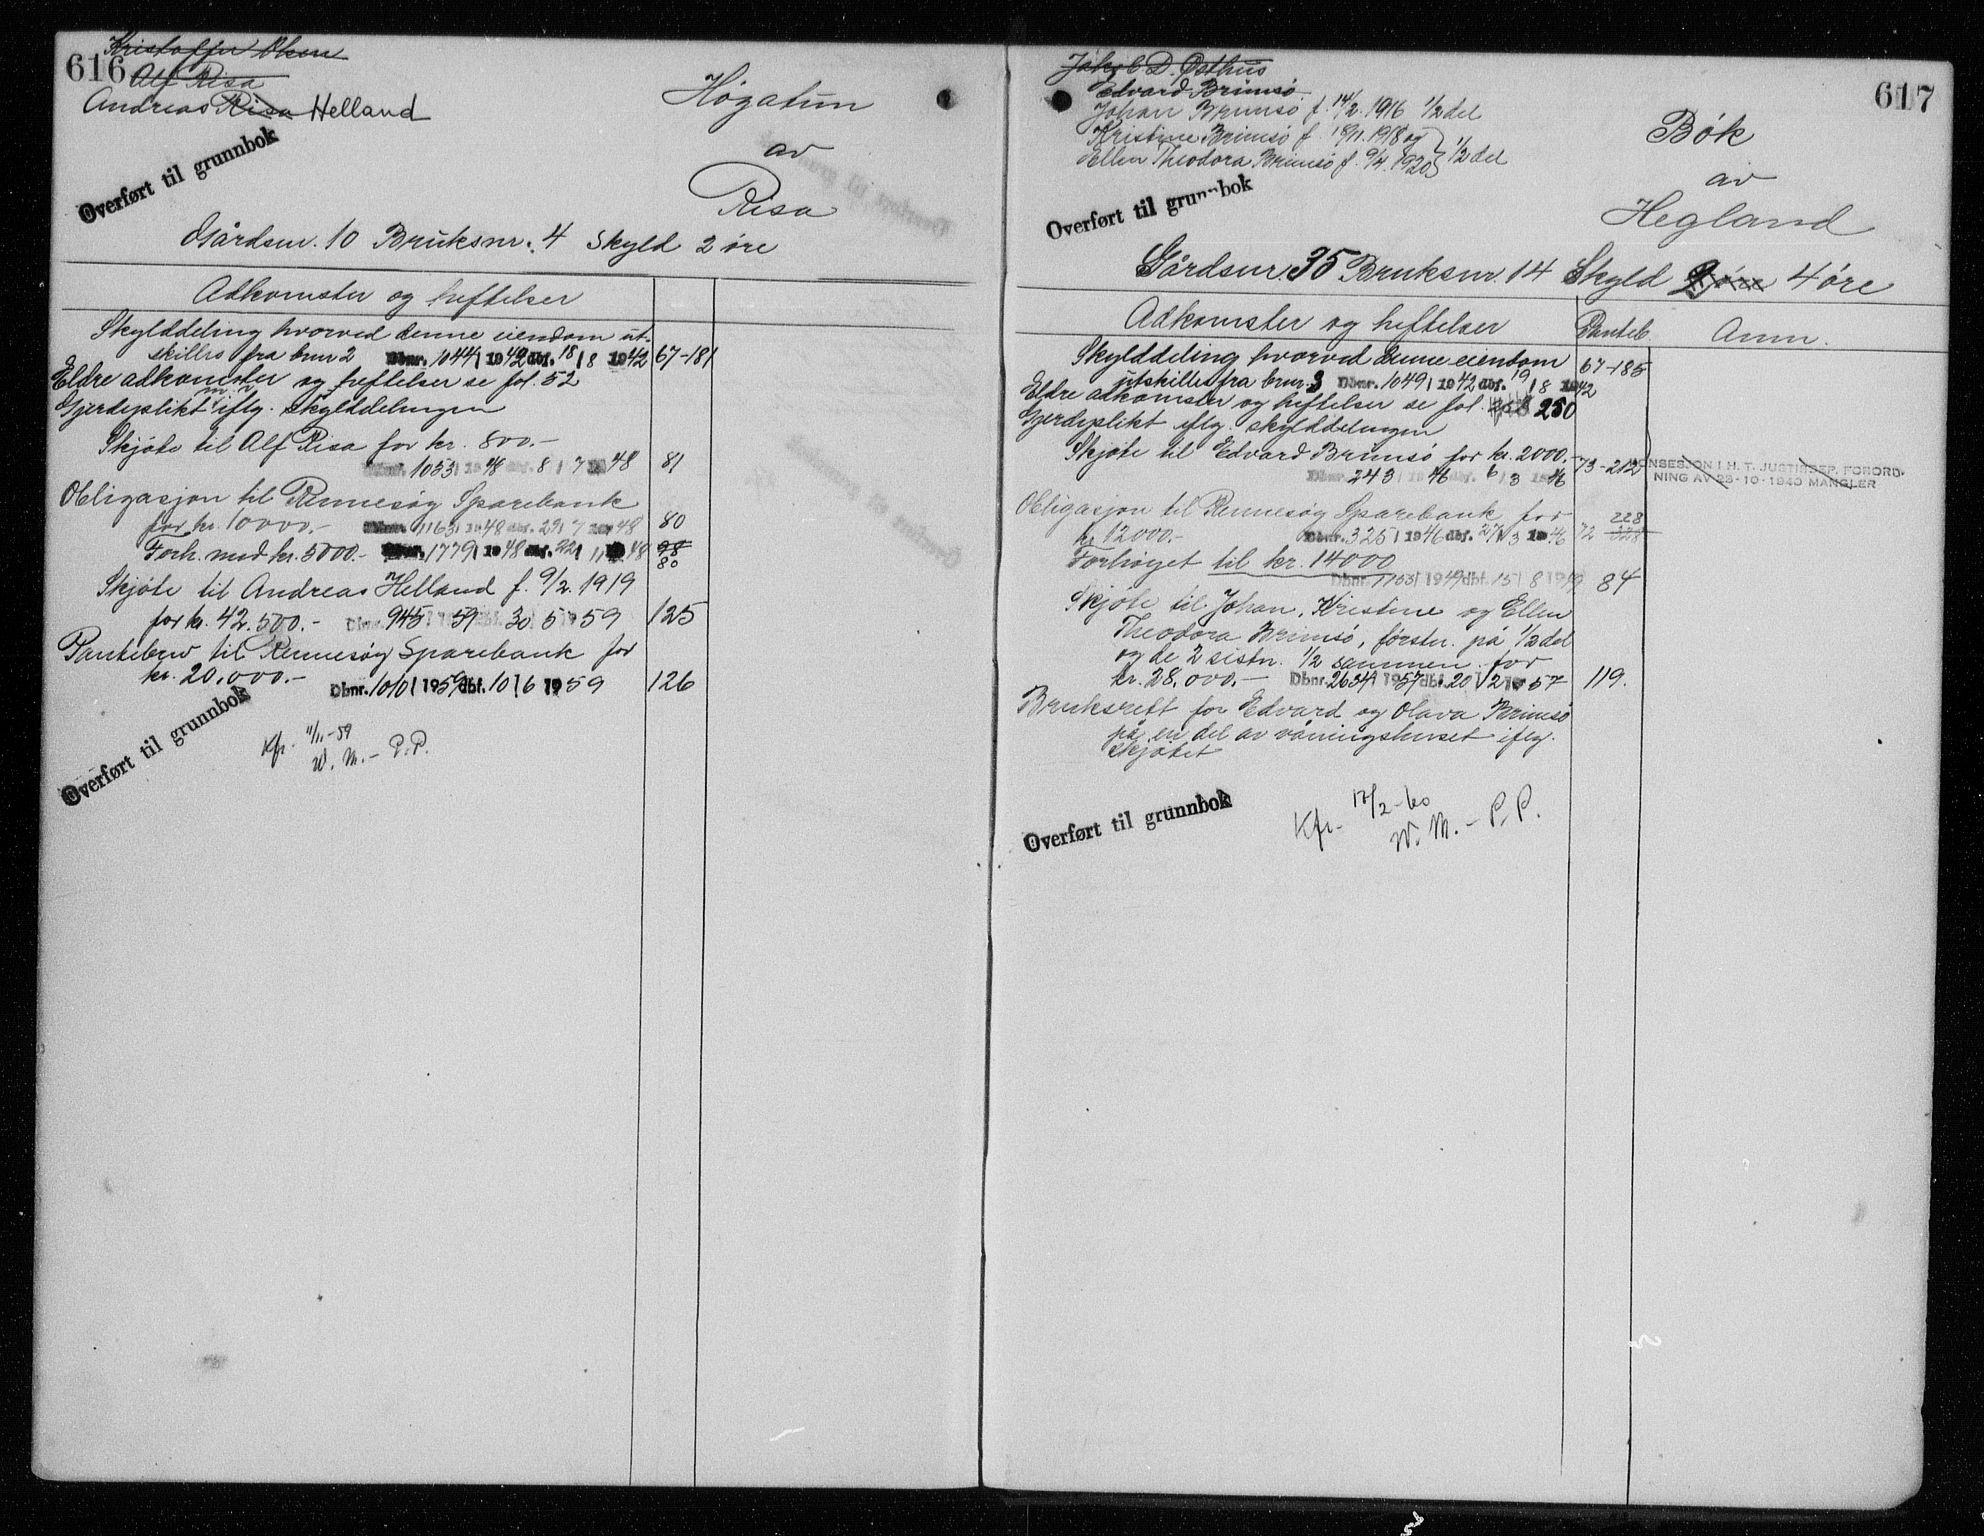 616
Kristoffer Olsen
Alf Risa
Andreas Risa Helland
Overført til grunnbok
Høgatun
av
Risa
Gårdsnr. 10 Bruksnr. 4 Skyld 2 øre
Adkomster og heftelser
Skylddeling hvorved denne eiendom ut-
skilles fra bnr 2 Dbnr. 1044/1942 dbf. 18/8 1942 67-181
Eldre adkomster og heftelser se fol. 52
Gjerdeplikt m.v. iflg. skylddelingen
Skjøte til Alf Risa for kr. 800.-
Dbnr. 1053/1948 dbf. 8/7 1948 81
Obligasjon til Rennesøy Sparebank
for kr. 10000.- Dbnr. 1163/1948 dbf. 29/7 1948 80
Forh. med kr. 5000.- Dbnr. 1779/1948 dbf. 22/11 1948 98
80
Skjøte til Andreas Helland f. 9/2. 1919
for kr. 42.500.- Dbnr. 945/1959 dbf. 30/5 1959 125
Pantebrev til Rennesøy Sparebank for
kr. 20,000.- Dbnr. 1010/1959 dbf. 10/6 1959 126
Overført til grunnbok
Kfr. 11/11-59
W. M. - P. P.
617
Jakob D. Østhus
Edvard Brimsø
Johan Brimsø f. 14/2. 1916 1/2 del
Kristine Brimsø f. 18/11. 1918 og
Ellen Theodora Brimsø f. 9/4. 1920 } 1/2 del
Overført til grunnbok
Bøk
av
Hegland
Gårdsnr. 35 Bruksnr. 14 Skyld 2 øre 4 øre
Adkomster og heftelser Panteb. Anm.
Skylddeling hvorved denne eiendom
utskilles fra bnr. 3 Dbnr. 1049/1942 dbf. 19/8 1942 67-185
Eldre adkomster og heftelser se fol. 250
Gjerdeplikt iflg. skylddelingen
Skjøte til Edvard Brimsø for kr. 2000.-
Dbnr. 243/1946 dbf. 6/3 1946 73-212
KONSESJON I H. T. JUSTISDEP. FORORD-
NING AV 23-10-1940 MANGLER
Obligasjon til Rennesøy Sparebank for
kr 12000.- Dbnr. 325/1946 dbf. 27/3 1946 72 228
Forhøyet til kr. 14000
Dbnr. 1153/1949 dbf. 15/8 1949 84
Skjøte til Johan, Kristine og Ellen
Theodora Brimsø, førstn. på 1/2 del
og de 2 sistn. 1/2 sammen for
kr. 28,000.- Dbnr. 2634/1957 dbf. 20/12 1957 119.
Bruksrett for Edvard og Olava Brimsø
på en del av våningshuset iflg.
skjøtet
Overført til grunnbok
Kfr. 17/2-60
W. M. - P. P.